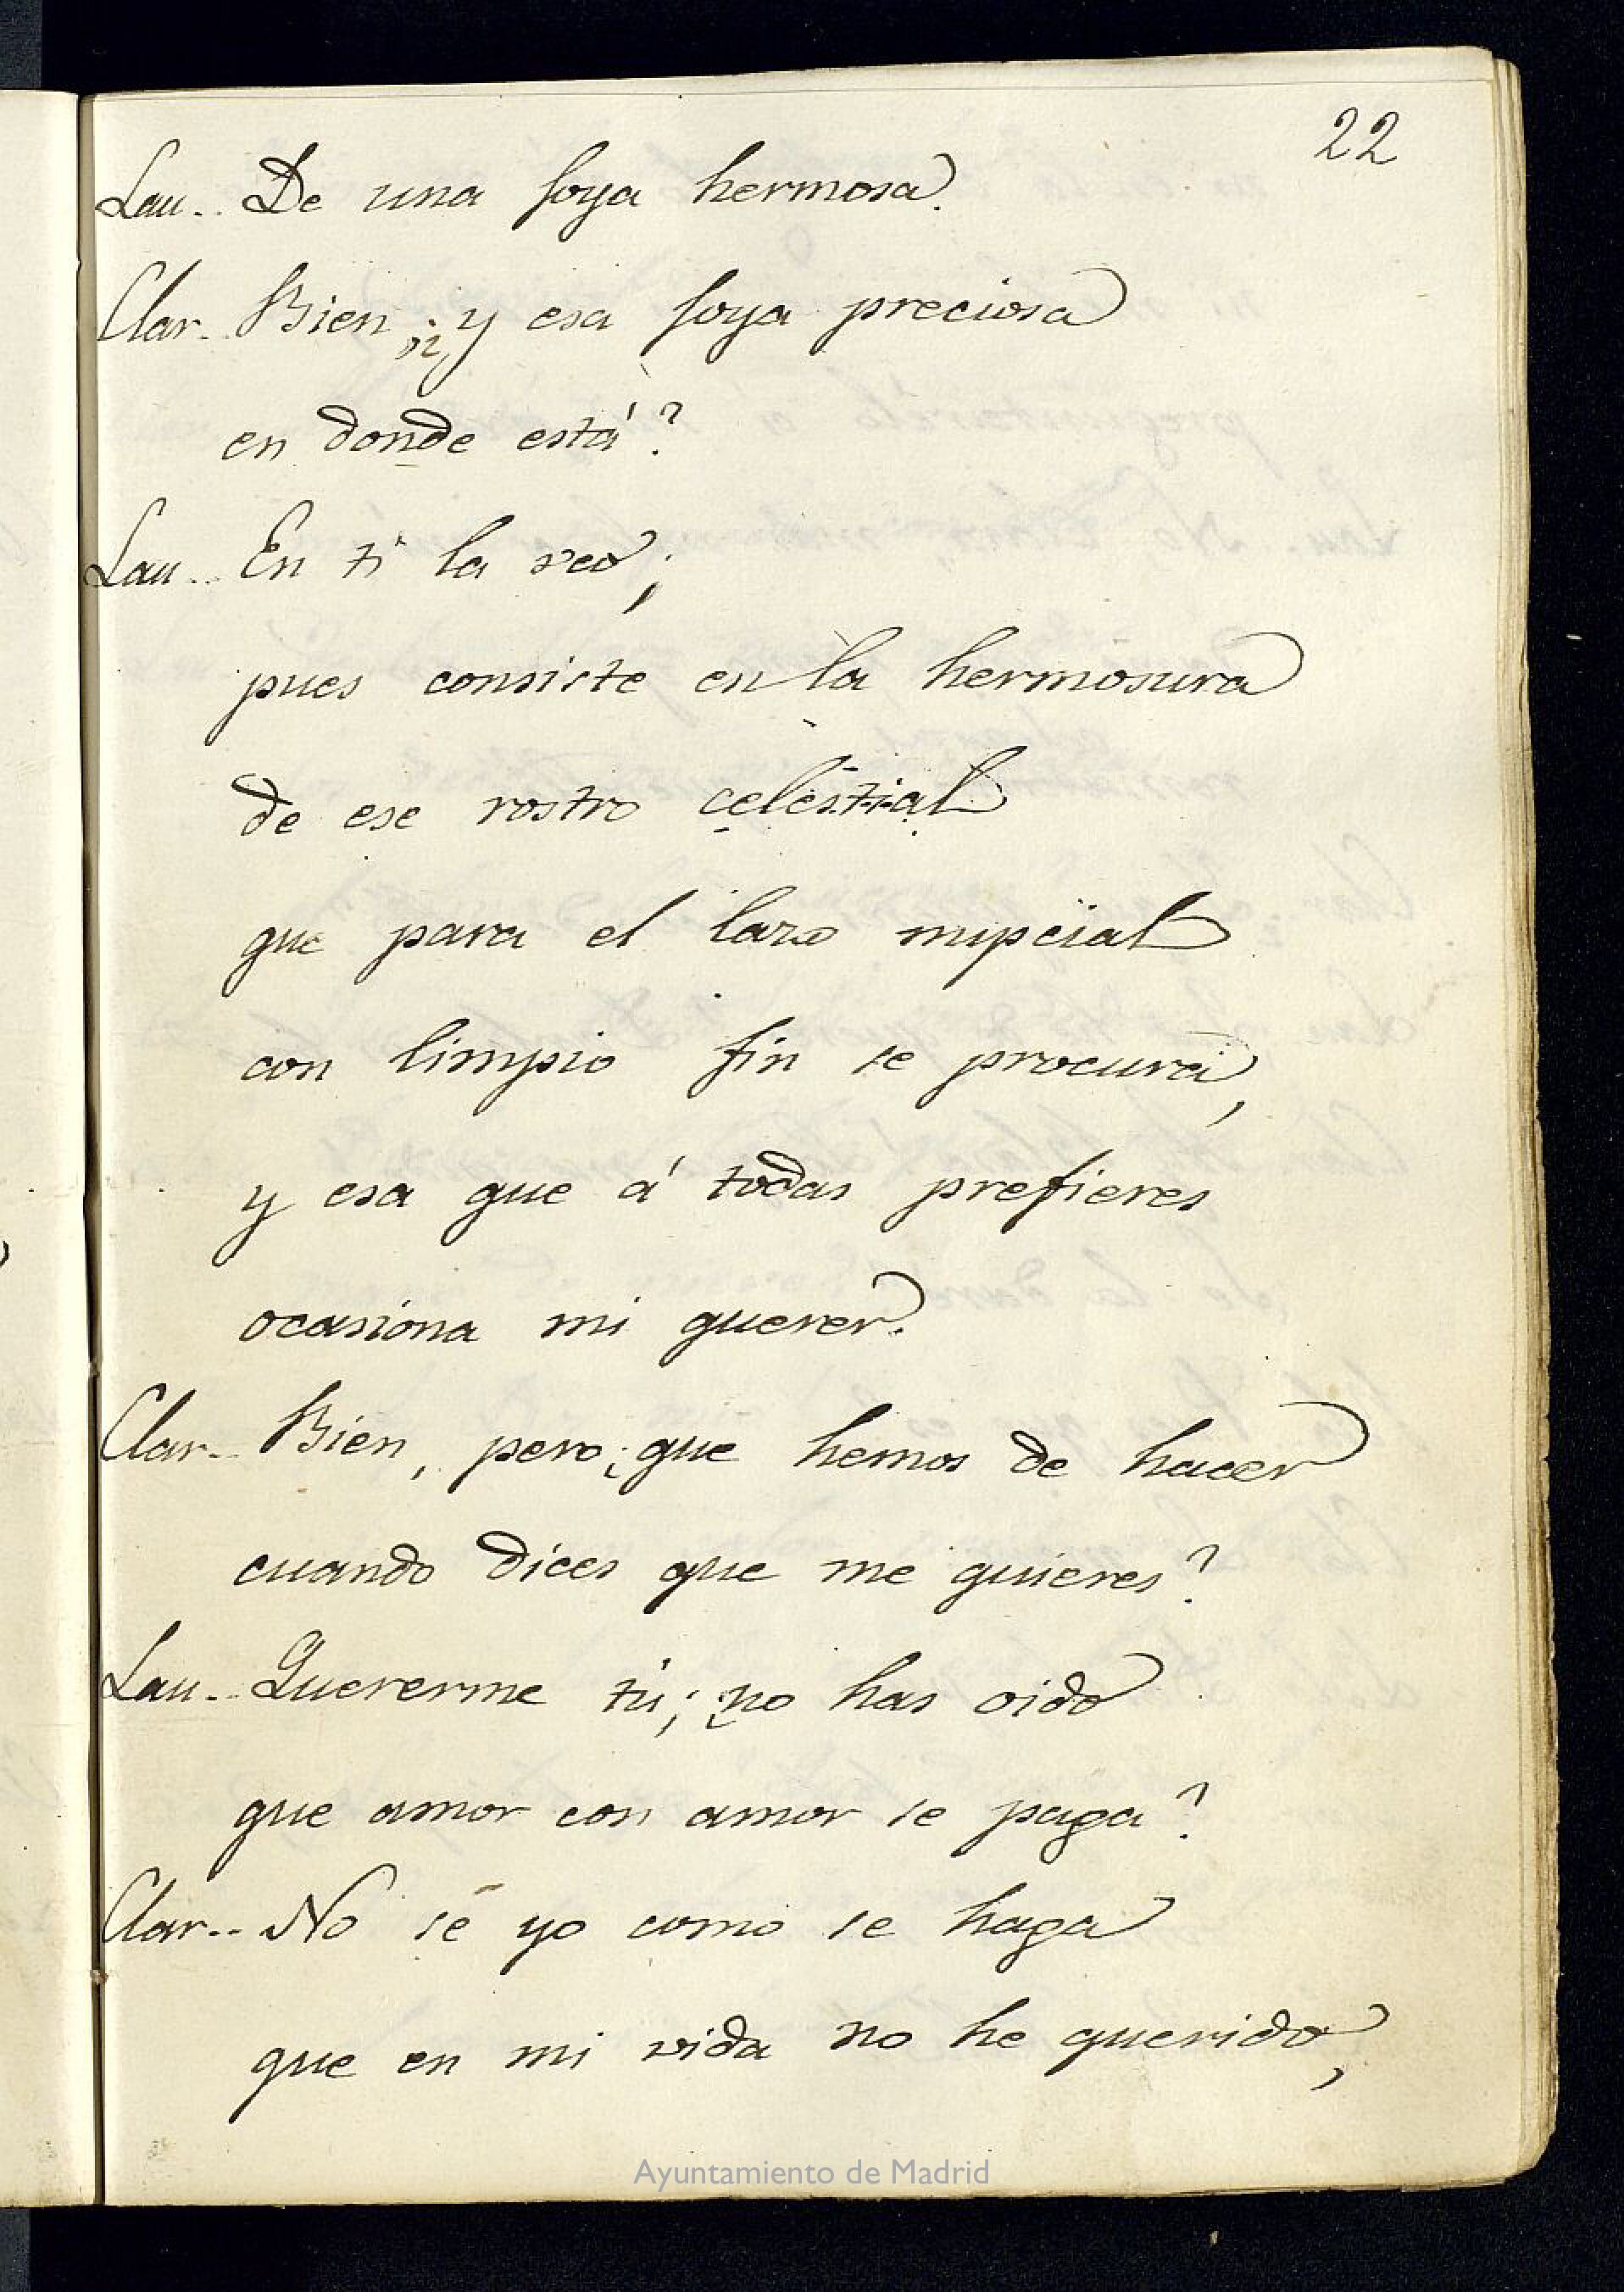 22
Lau.. De una Joya hermosa.
Clar.. Bien, ¿y esa Joya preciosa
en donde está?
Lau.. En ti la veo;
pues consiste en la hermosura
de ese rostro celestial
que para el lazo nupcial
con limpio fin se procura,
y esa que á todas prefieres
ocasiona mi querer.
Clar.. Bien, pero ¿que hemos de hacer
cuando dices que me quieres?
Lau.. Quererme tú; ¿no has oido
que amor con amor se paga?
Clar.. No sé yo como se haga
que en mi vida no he querido,
Ayuntamiento de Madrid